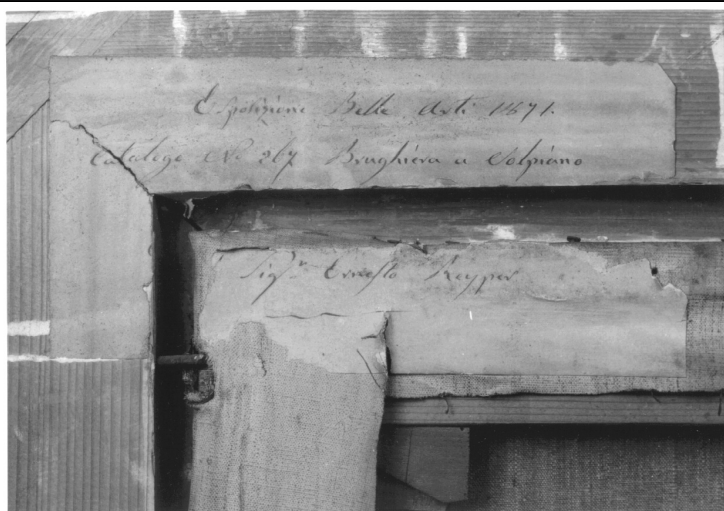 Esposizione Belle Arti 1871.
Catalogo N. 267 Brughiera a Solpiano
Sigr. Ernesto Keyper